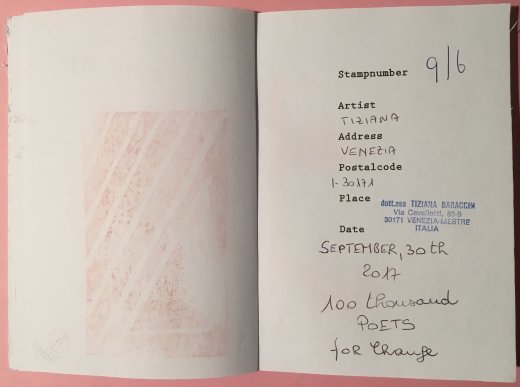 Stampnumber 9/6
Artist
TIZIANA
Address
VENEZIA
Postalcode
I-30171
Place
dott.ssa TIZIANA BARACCHI
Via Cavallotti, 83-B
30171 VENEZIA-MESTRE
ITALIA
Date
SEPTEMBER, 30th
2017
100 thousand
POETS
foR Change